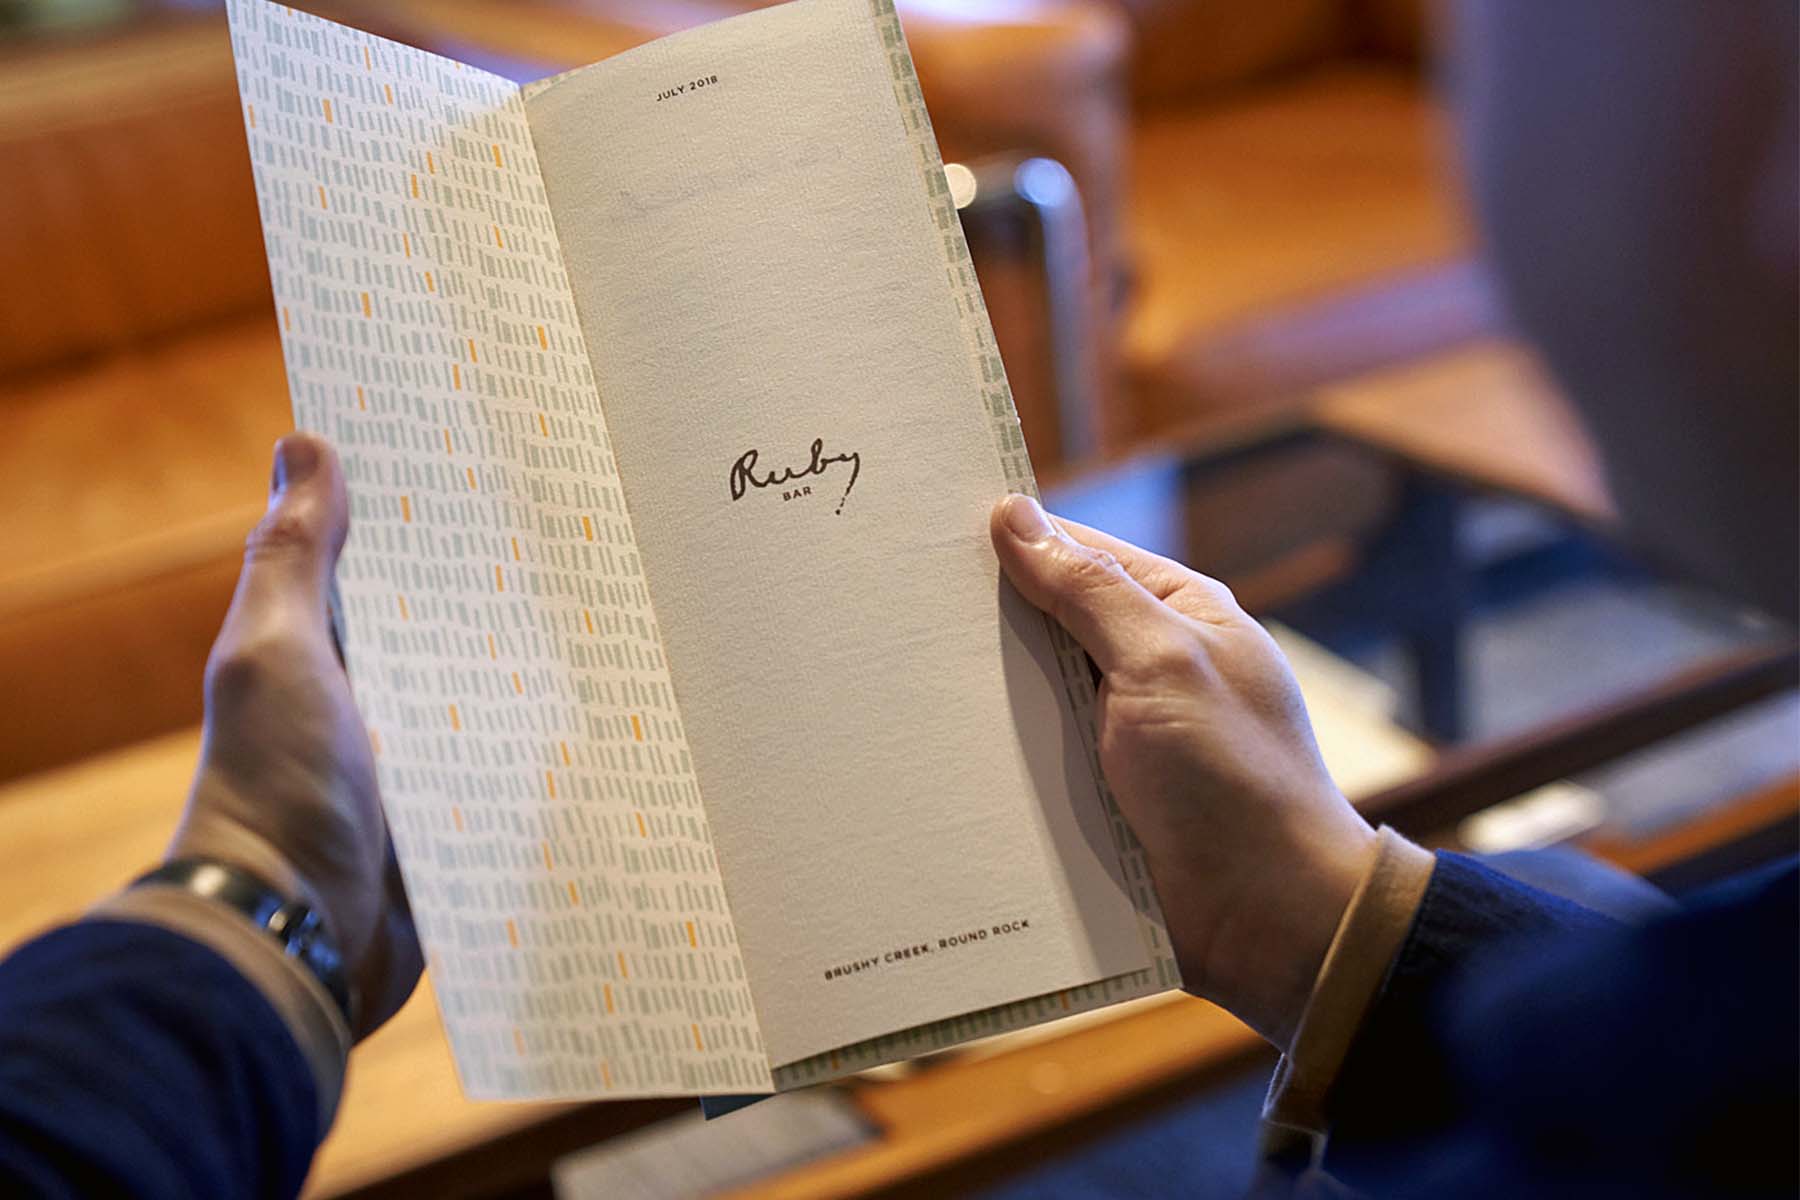 JULY 2018
Ruby
BAR
BRUSHY CREEK, ROUND ROCK